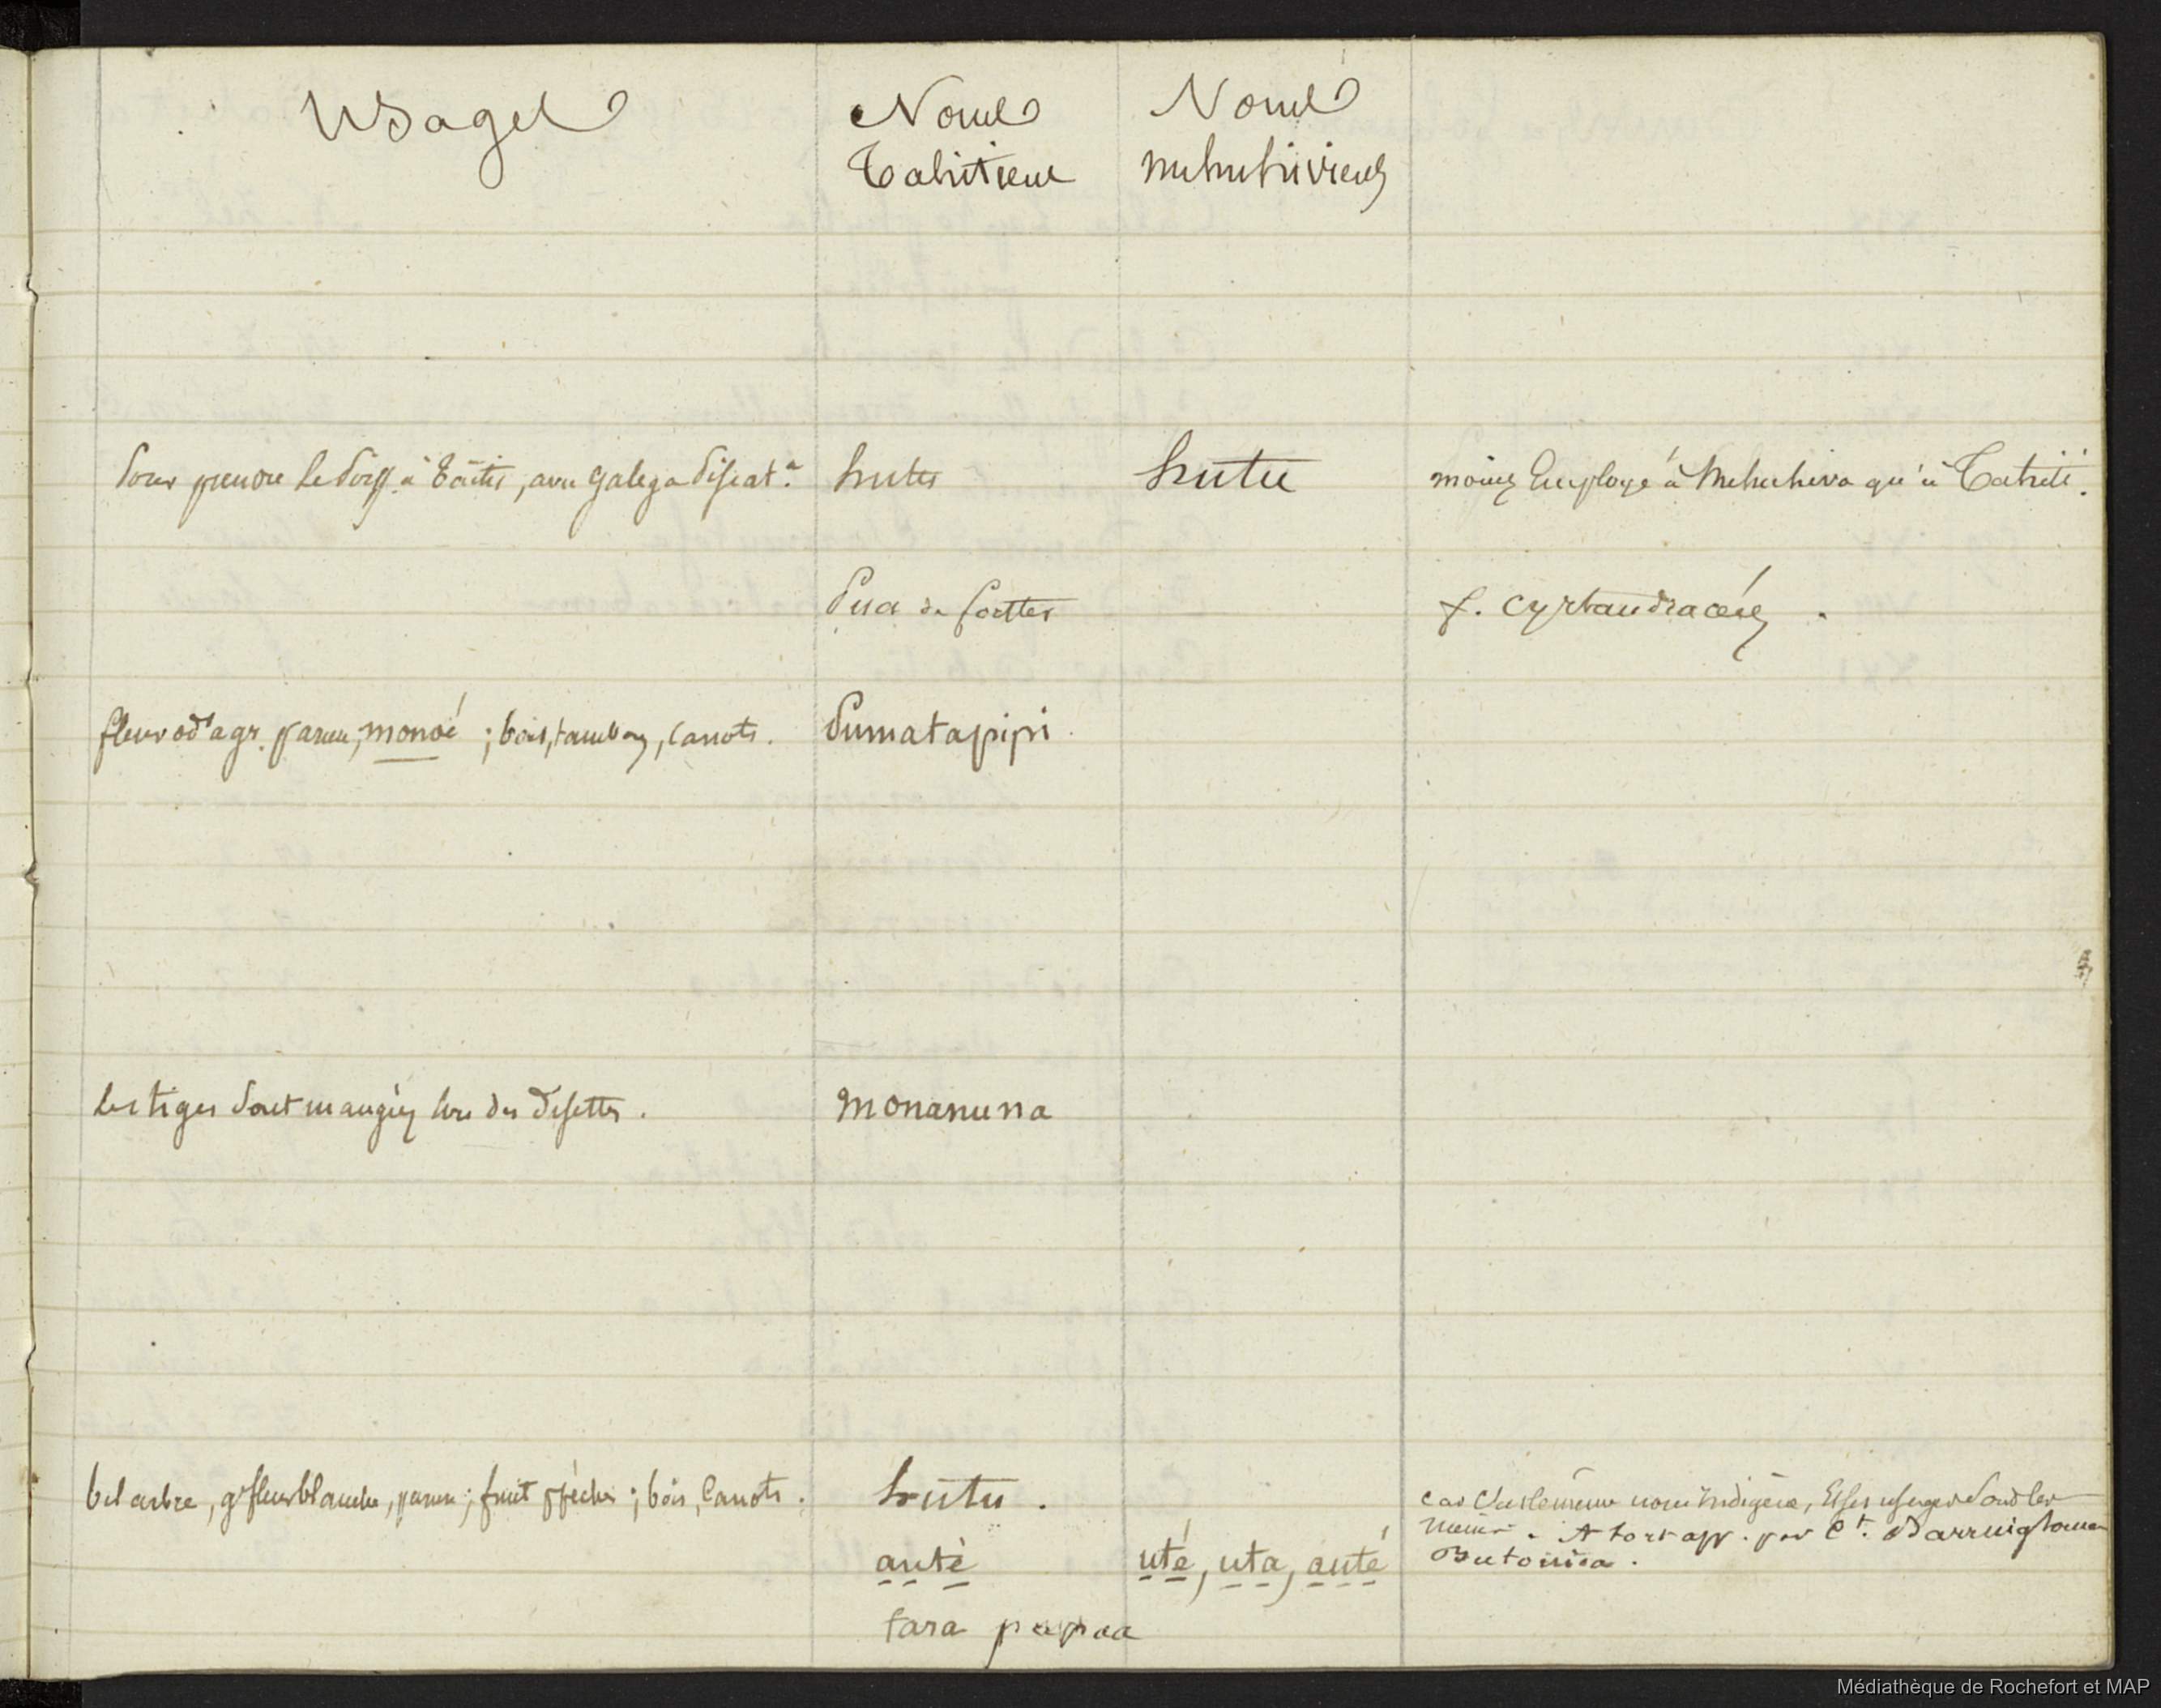 Usages
Noms Tahitiens
Noms nuhuhiviens
Pour prendre le poiss. à Taïti, avec galega piscat.a hutu hutu moins Employé à Nuhuhiva qu'à Tahiti.
Pua da f. cyrtandracées.
fleur od. agr. parure, monoé; bois, tambours, canots. Pumatapipi.
les tiges sont mangées lors des disettes. monanuna
bel arbre, gr fleur blanche, parure; fruit pêche; bois, Canots. hutu. car C'est le même nom indigène, Et les usages sont les
auté uté, uta, auté mêmes. A tort app. par Ct. Barringtonia
Butonica.
tara papaa
Médiathèque de Rochefort et MAP